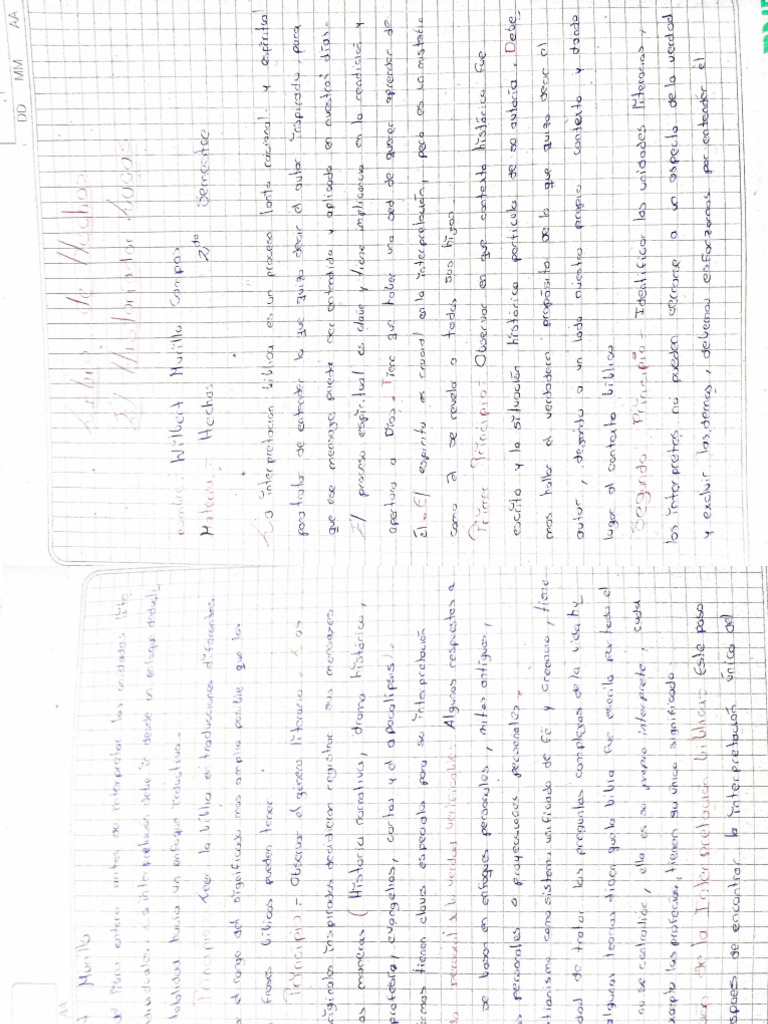 DD MM AA
Trabajo de Hechos
El Historiador Lucas
Nombre: Wilbert Murillo Campos
Materia:- Hechos 2do Semestre
La interpretación bíblica es un proceso tanto racional y espiritual
para tratar de entender lo que quizo decir el autor inspirado, para
que ese mensaje pueda ser entendido y aplicado en nuestros días.-
El proceso espiritual es clave y tiene implicancia en la condición y
apertura a Dios. Tiene que haber una sed de querer aprender de
Él.- El espíritu es crucial en la interpretación, pero es un misterio
como él se revela a todos sus hijos.-
Primer Principio: Observar en que contexto histórico fue
escrito y la situación histórica particular de su autoría. Debe-
mos hallar el verdadero propósito de lo que quizo decir el
autor, dejando a un lado nuestro propio contexto y dando
lugar al contexto bíblico.
Segundo Principio.- Identificar las unidades literarias,
los interpretes no pueden cerrarse a un aspecto de la verdad
y excluir los demás, debemos esforzarnos por entender el
AA
Murillo
del libro entero antes de interpretar las unidades
individuales. La interpretación debe ir desde un enfoque
hacia un enfoque inductivo.-
Principio: Leer la biblia en traducciones diferentes
el rango del significado mas amplio posible que las
frases bíblicas pueden tener
Principio:- Observar el género literario.- Los
originales inspirados decidieron registrar sus mensajes
maneras (Historia narrativa, drama histórico,
profecía, evangelios, cartas y el apocalipsis).-
formas tienen claves especiales para su interpretación
personal a la verdad verificable: Algunas respuestas a
se basan en enfoques personales, mitos antiguos,
personales o proyecciones personales.-
cristianismo como sistema unificado de Fé y creencia, tiene
de tratar las preguntas complejas de la vida hy
algunas teorías dicen que la biblia fue escrita por todo el
no se contradice, ella es su propio interprete, cada
excepto las profecías, tienen su único significado.
de la Interpretación bíblica:- Este paso
de encontrar la interpretación única del